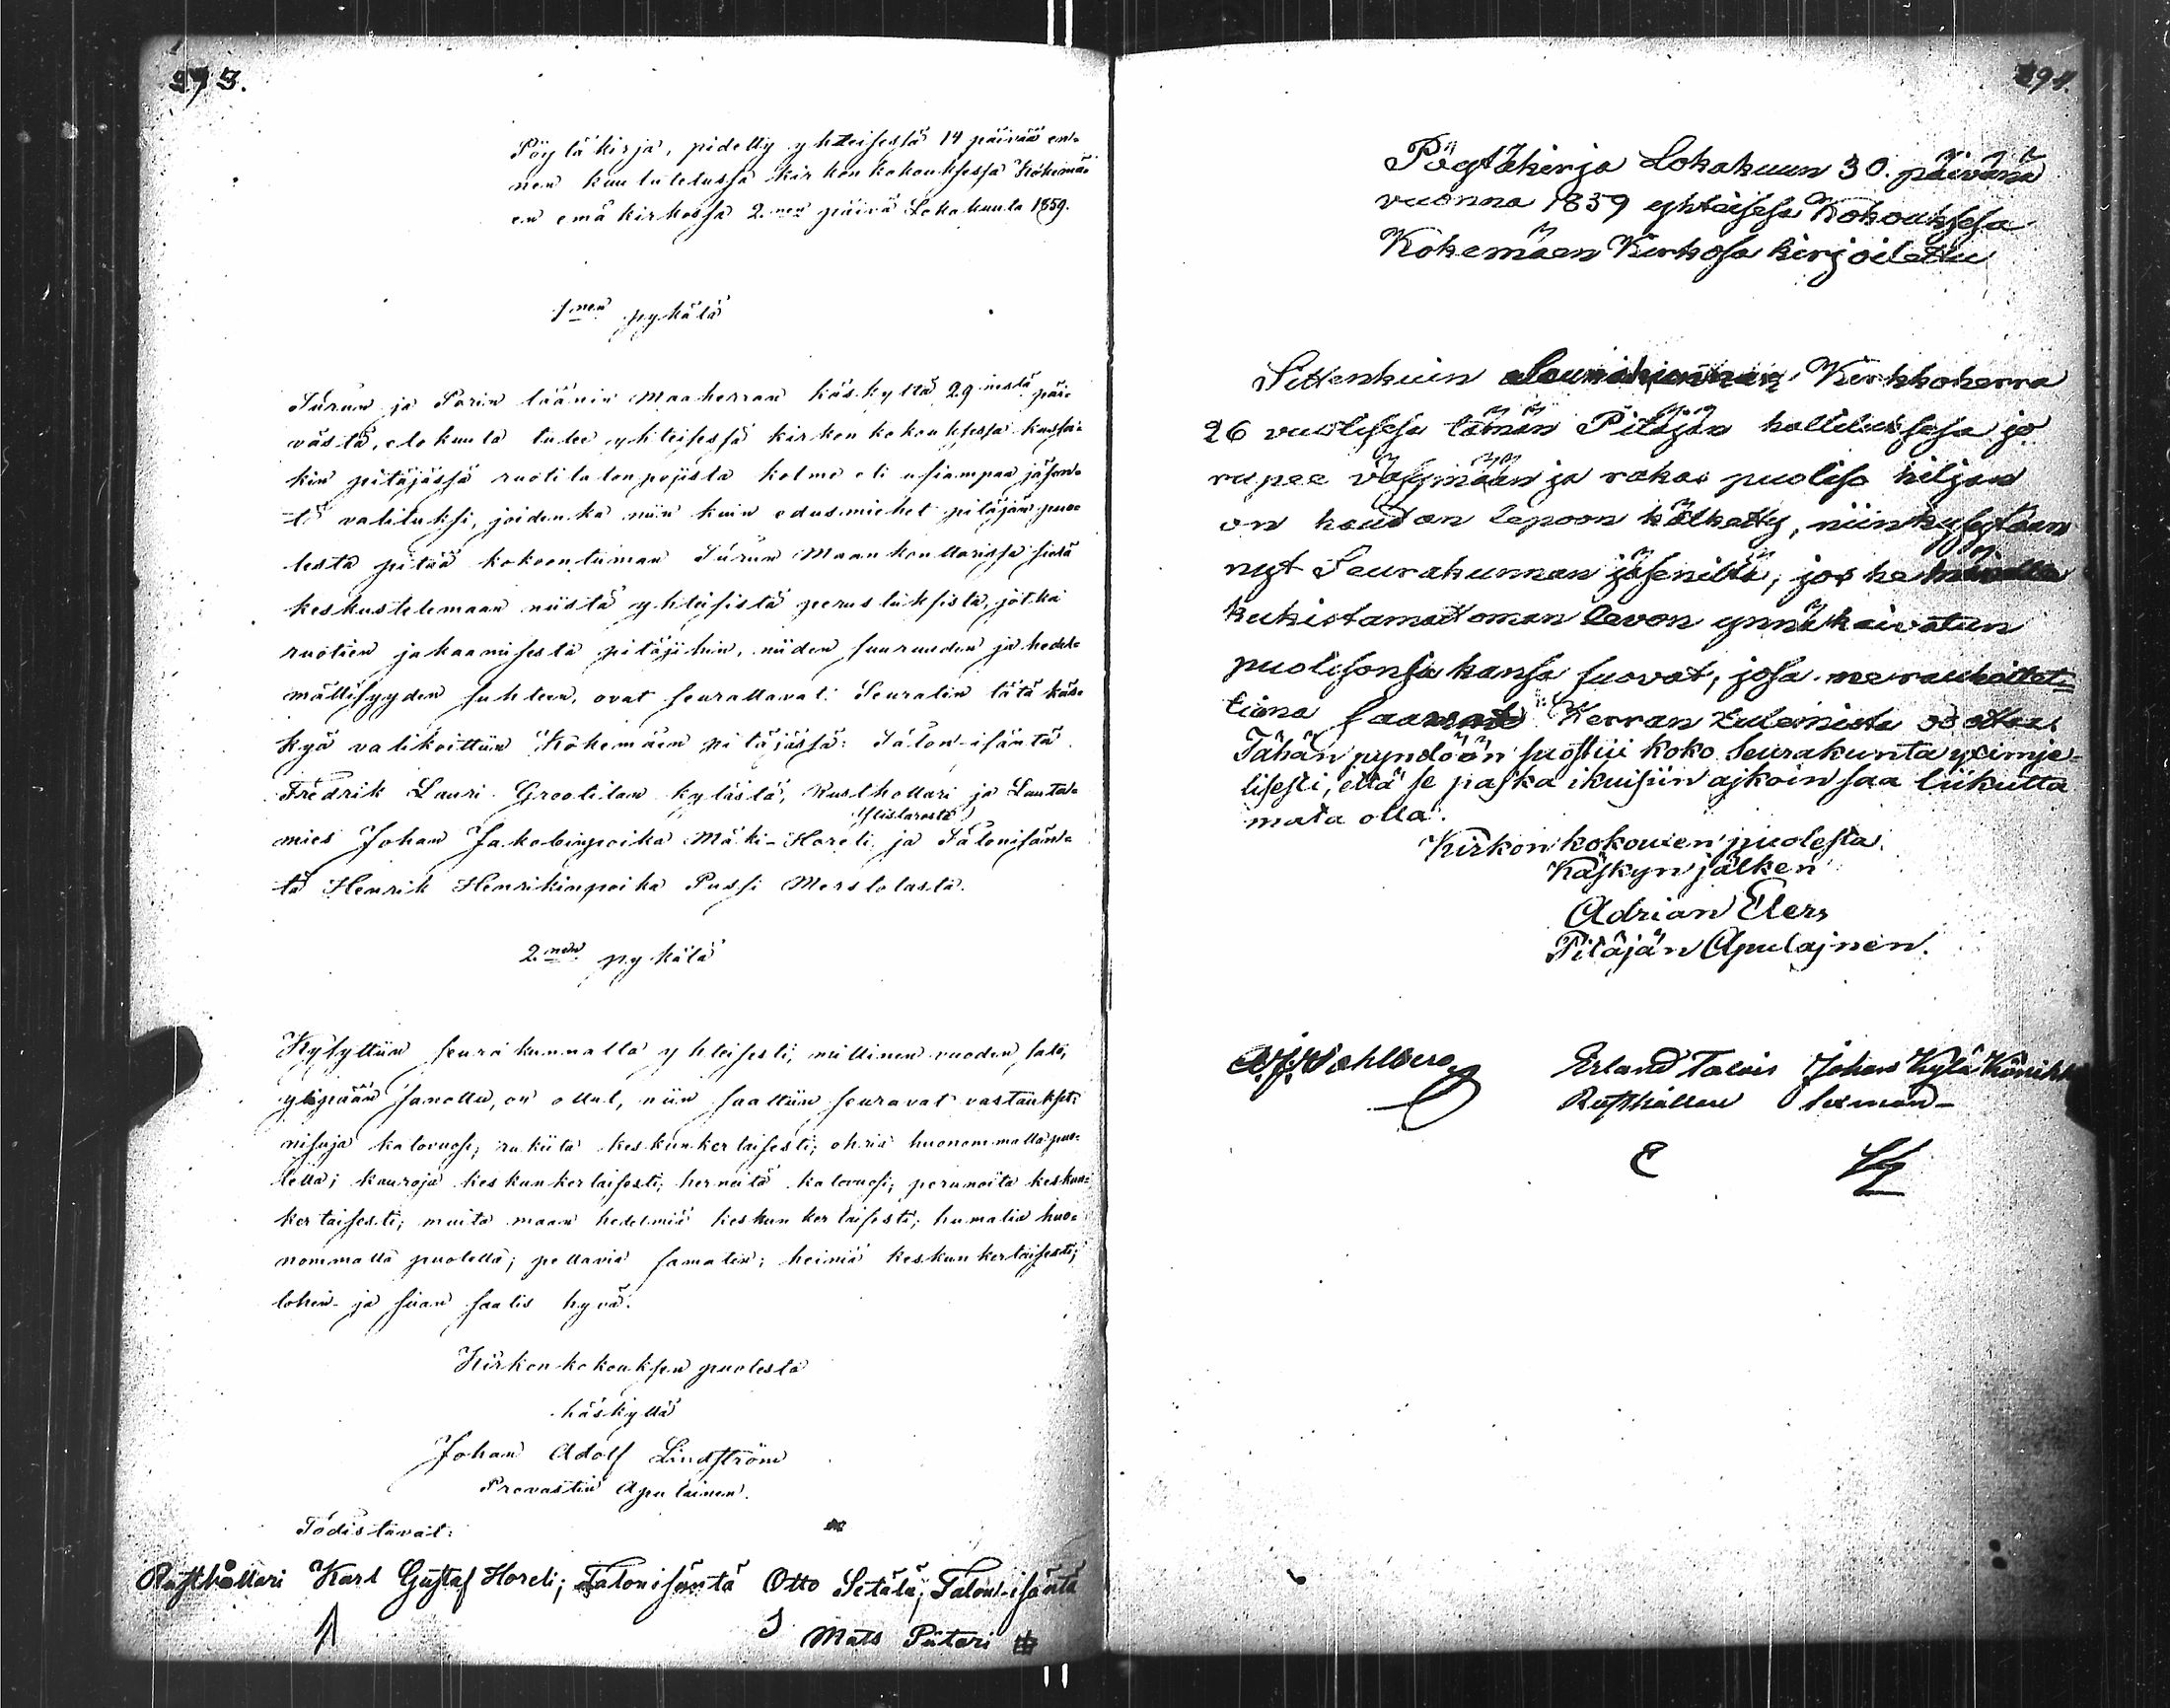 293.
Pöytäkirja, pidetty yhteisessä 14 päivää en-
nen kuulutetussa kirkon kokouksessa Kokemä-
en emäkirkossa 2.nen päivä Lokakuuta 1859.
1nen pykälä
Turun ja Porin läänin Maaherran käskystä 29 nestä päi-
västä, elokuuta tulee yhteisessä kirkon kokouksessa kussa-
kin pitäjässä ruotitalonpojista kolme eli usiampaa jäsen-
tä valituksi, joidenka niin kuin edusmiehet pitäjän puo-
lesta pitää kokoontuman Turun Maankonttorissa siellä
keskustelemaan niistä yhteisistä perustuksista, jotka
ruotien jakaamisesta pitäjihin, niiden suuruuden ja hedel-
mällisyyden suhteen, ovat seurattavat. Seuratin tätä käs-
kyä valikoittiin Kokemäen pitäjässä: Talon-isäntä
Fredrik Lauri Grootilan kylästä, Rusthollari ja Lauta-
Ylistarosta
mies Johan Jakobinpoika Mäki-Horeli ja Talonisän-
tä Henrik Henrikinpoika Pussi Merstolasta.
2.nen pykälä
Kysyttiin seurakunnalta yhteisesti, millinen vuoden tulo,
ylipään sanottu, on ollut, niin saattiin seuravat vastaukset:
nisuja katovuosi; rukiita keskunkertaisesti; ohria huonommalla puo-
lella; kauroja keskunkertaisesti; herneitä katovuosi; perunoita keskun-
kertaisesti; muita maan hedelmiä keskunkertaisesti; humalia huo-
nommalla puolella; pellavia samatin; heiniä keskunkertaisesti;
lohin- ja siian saalis hyvä.
Kirkon kokouksen puolesta
käskyllä
Johan Adolf Lindström
Provastin Apulainen.
Todistavat:
Rusthollari Karl Gustaf Horeli; Talonisäntä Otto Setälä; Talon-isäntä
Mats Piitari
294.
Pöytäkirja Lokakuun 30. päivänä
vuonna 1859 yhteisesä Kokouksesa
Kokemäen Kirkosa kirjoitettu
Sittenkuin Kirkkoherra
26 vuotisesa tämän Pitäjän hallituksesa jo
rupee väsymään ja rakas puoliso hiljan
on haudan lepoon kätketty, niin kysytään
nyt Seurakunnan jäseniltä, jos he
kukistamattoman levon ynnä kaivatun
puolisonsa kansa suovat, josa me rauhoitet-
tuina Herran tulemista odottaa.
Tähän pyndöön suostui koko seurakunta yximie-
lisesti, että se paikka ikuisiin ajkoin saa liikutta
mata olla.
Kirkon kokouxen puolesta.
Käskyn jälken
Adrian Elers
Pitäjän Apulajnen.
Erland Talois Johan Kylä
Rusthållare Sexman
E